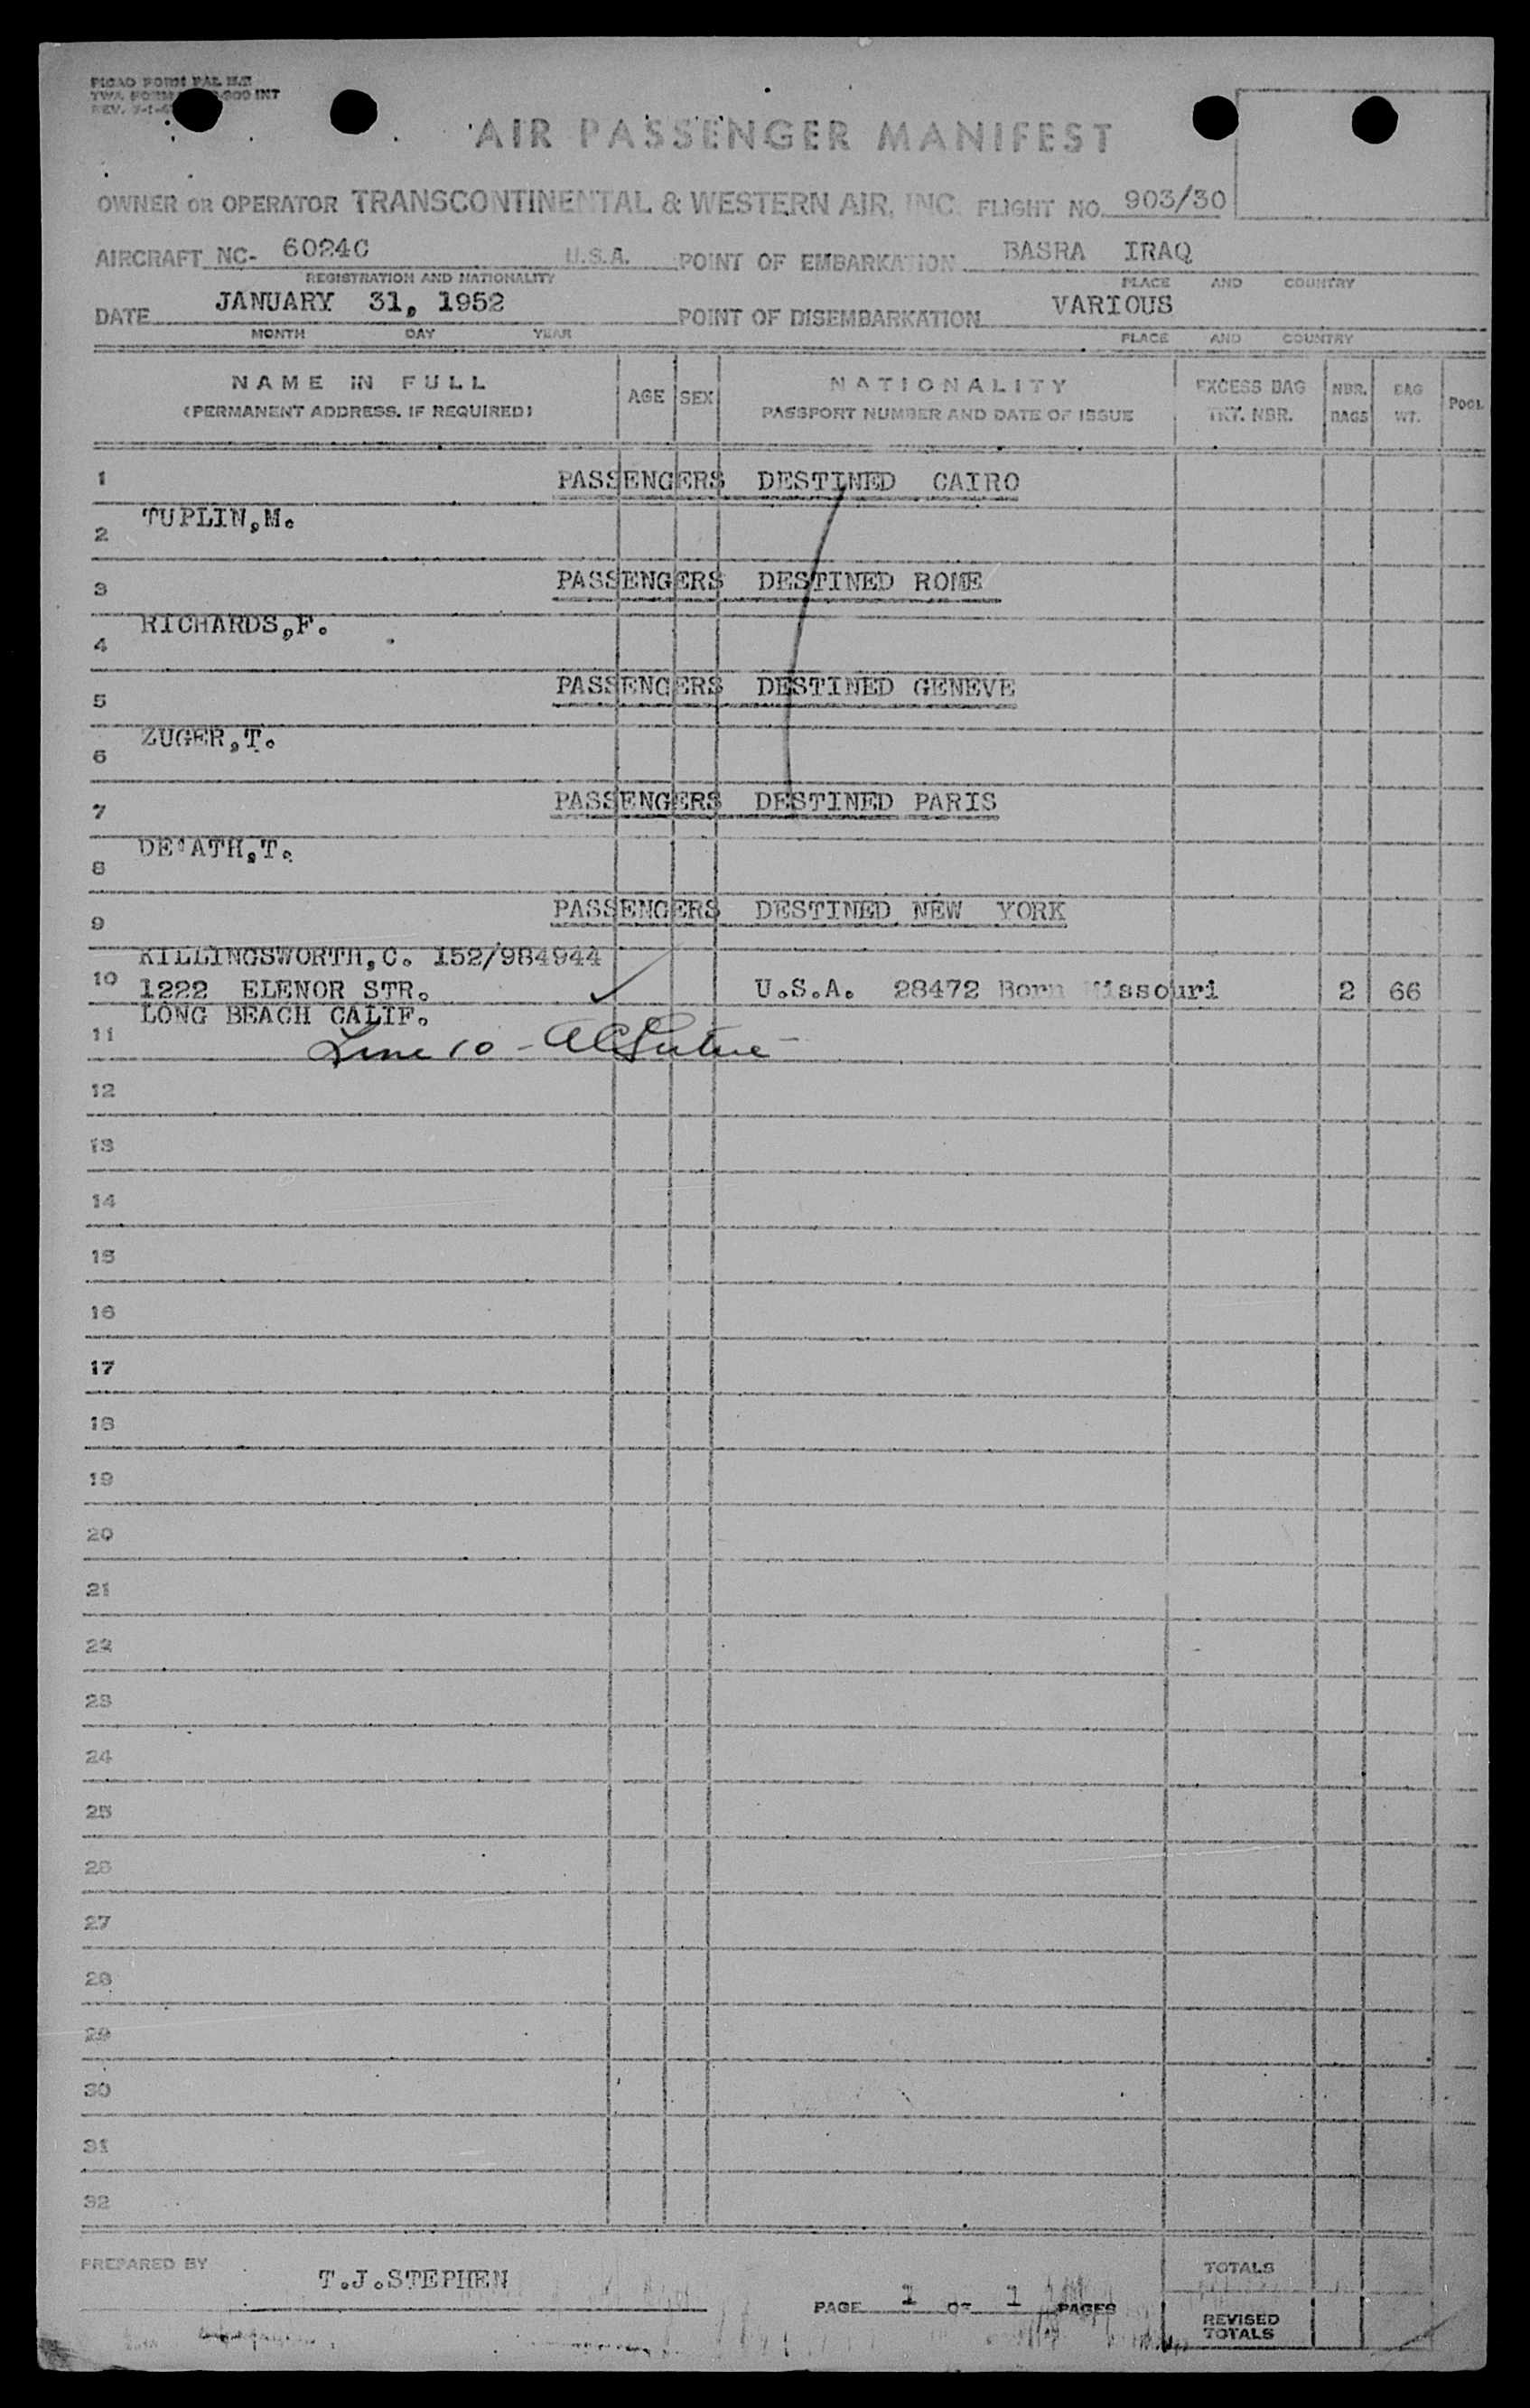 PICAO FORM PAL
TWA FORM 900 INT
REV.
AIR PASSENGER MANIFEST
OWNER OR OPERATOR TRANSCONTINENTAL & WESTERN AIR, INC. FLIGHT NO. 903/30
AIRCRAFT NC- 6024C U.S.A. POINT OF EMBARKATION BASRA IRAQ
REGISTRATION AND NATIONALITY PLACE AND COUNTRY
DATE JANUARY 31, 1952 POINT OF DISEMBARKATION VARIOUS
MONTH DAY YEAR PLACE AND COUNTRY
NAME IN FULL AGE SEX NATIONALITY EXCESS BAG NBR. BAG POOL
(PERMANENT ADDRESS. IF REQUIRED) PASSPORT NUMBER AND DATE OF ISSUE TKT. NBR. BAGS WT.
1 PASSENGERS DESTINED CAIRO
2 TUPLIN,M.
3 PASSENGERS DESTINED ROME
4 RICHARDS,F.
5 PASSENGERS DESTINED GENEVE
6 ZUGER,T.
7 PASSENGERS DESTINED PARIS
8 DE'ATH,T.
9 PASSENGERS DESTINED NEW YORK
KILLINGSWORTH,C. 152/984944
10 1222 ELENOR STR. U.S.A. 28472 Born Missouri 2 66
LONG BEACH CALIF.
11 Line 10 -
12
13
14
15
16
17
18
19
20
21
22
23
24
25
26
27
28
29
30
31
32
PREPARED BY T.J.STEPHEN PAGE 1 OF 1 PAGES TOTALS
REVISED
TOTALS